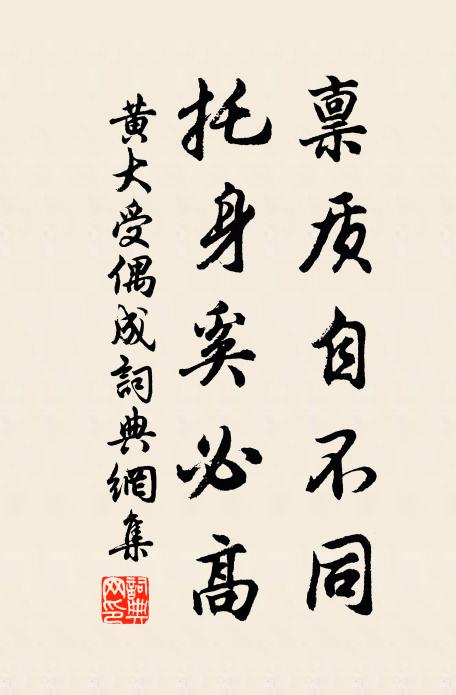 禀质自不同
托身奚必高
黄大受偶成詞典網集
詞典網印